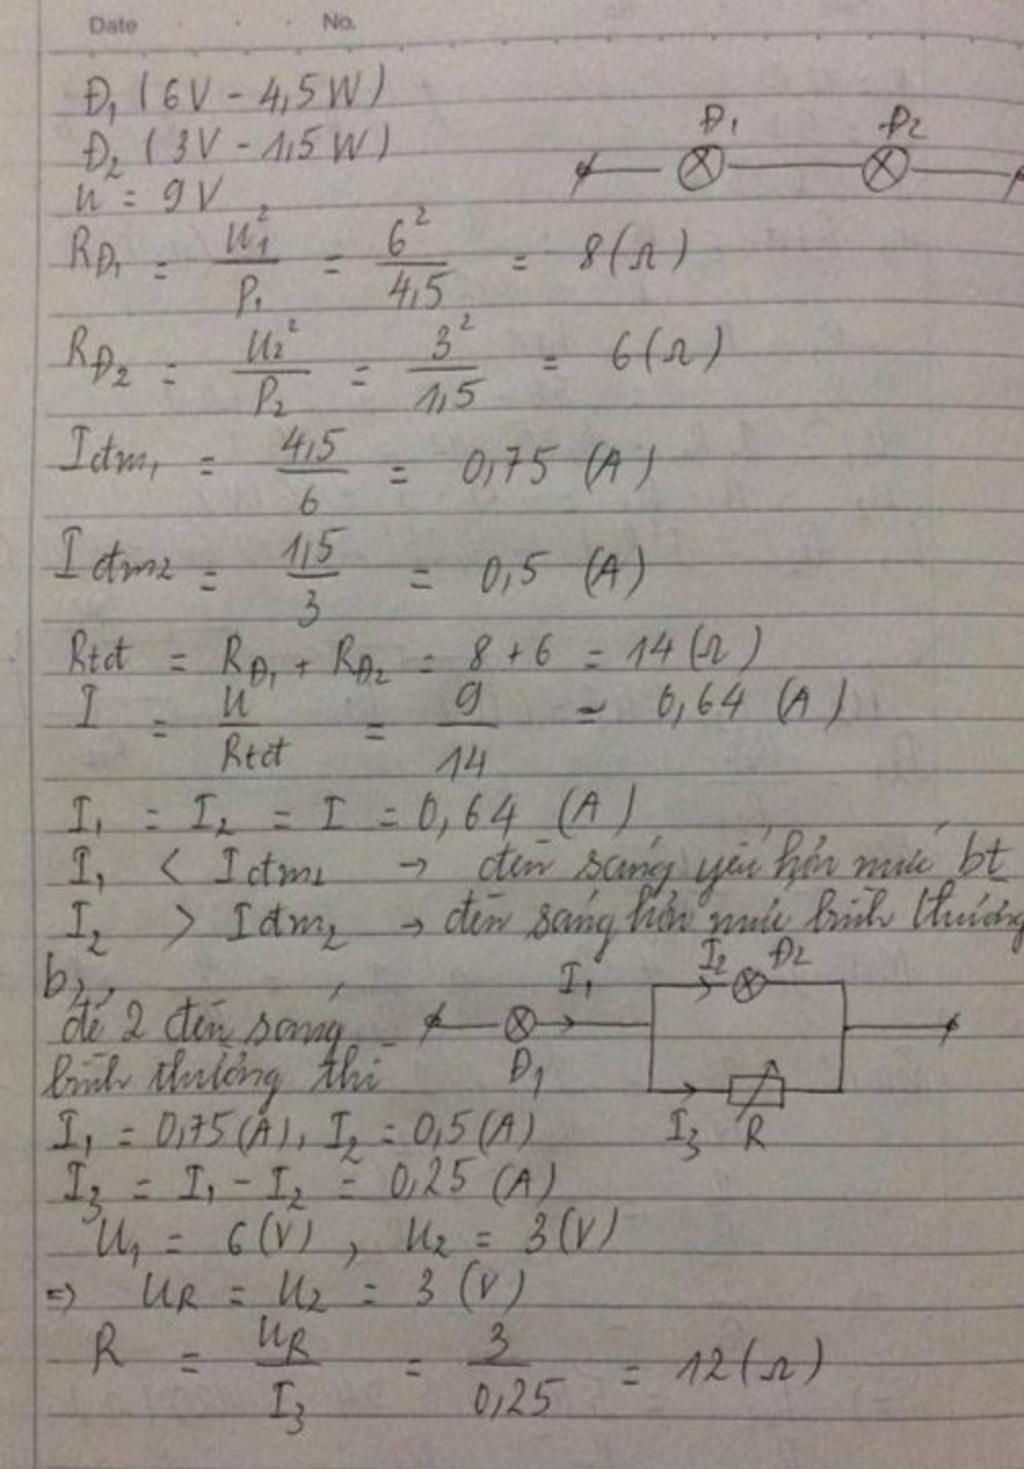 Date No.
Đ₁ (6V - 4,5W)
Đ₂ (3V - 1,5W)
U = 9V
Đ₁ Đ₂
R_Đ₁ = U₁²/P₁ = 6²/4,5 = 8(Ω)
R_Đ₂ = U₂²/P₂ = 3²/1,5 = 6(Ω)
Iđm₁ = 4,5/6 = 0,75 (A)
Iđm₂ = 1,5/3 = 0,5 (A)
Rtđ = R_Đ₁ + R_Đ₂ = 8 + 6 = 14(Ω)
I = U/Rtđ = 9/14 ~ 0,64 (A)
I₁ = I₂ = I = 0,64 (A)
I₁ < Iđm₁ → đèn sáng yếu hơn mức bt
I₂ > Iđm₂ → đèn sáng hơn mức bình thường
b),
để 2 đèn sáng
bình thường thì
I₁ Đ₁ I₂ Đ₂ I₃ R
I₁ = 0,75(A), I₂ = 0,5(A)
I₃ = I₁ - I₂ = 0,25 (A)
U₁ = 6(V), U₂ = 3(V)
=> U_R = U₂ = 3 (V)
R = U_R/I₃ = 3/0,25 = 12(Ω)